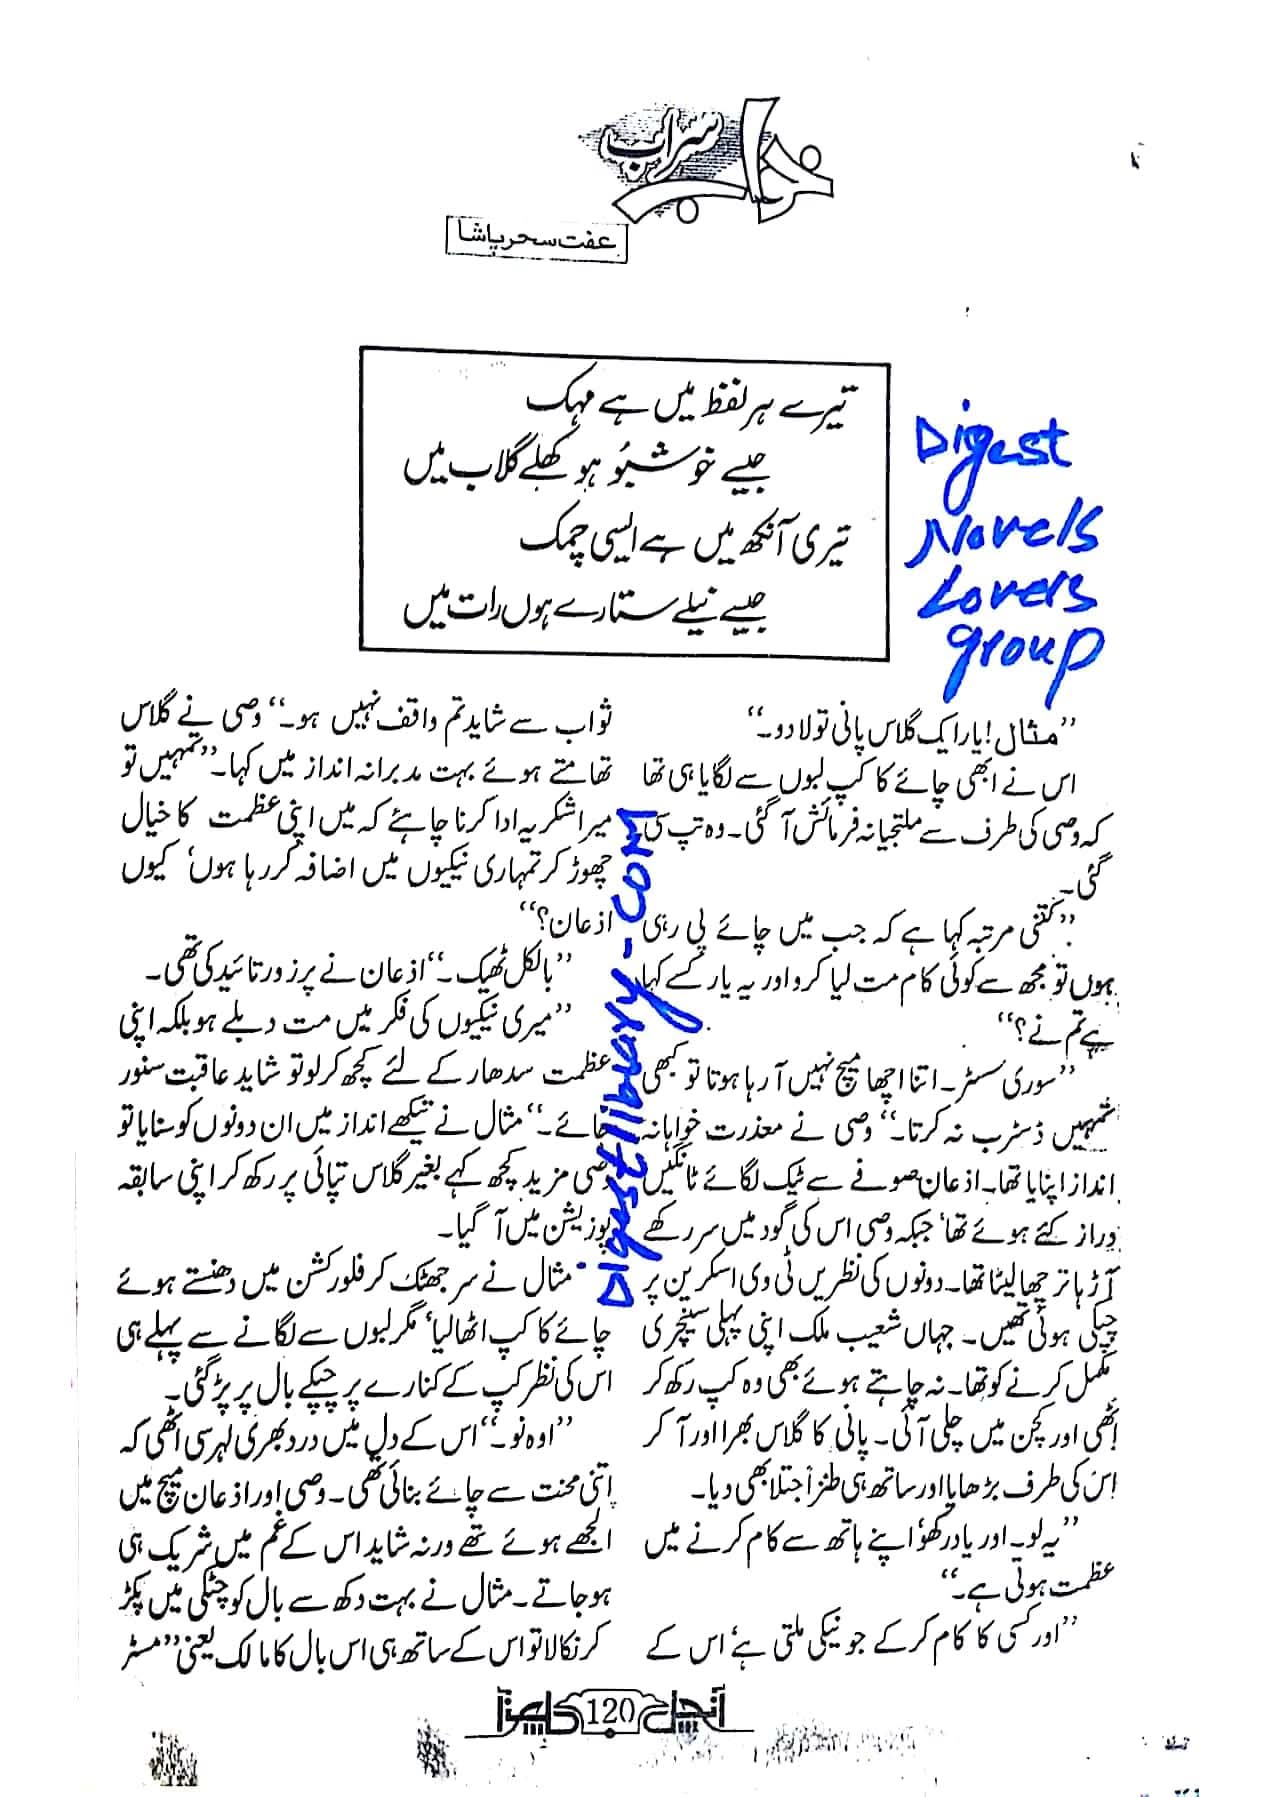 خواب سراب
عفت سحر پاشا
تیرے ہر لفظ میں ہے مہک
جیسے خوشبُو ہو کھلے گلاب میں
تیری آنکھ میں ہے ایسی چمک
جیسے نیلے ستارے ہوں رات میں
Digest
Novels
Lovers
group
’’مثال! یار ایک گلاس پانی تو لا دو۔‘‘
اس نے ابھی چائے کا کپ لبوں سے لگایا ہی تھا
کہ وصی کی طرف سے ملتجیانہ فرمائش آ گئی۔ وہ تپ سی
گئی۔
’’کتنی مرتبہ کہا ہے کہ جب میں چائے پی رہی
ہوں تو مجھ سے کوئی کام مت لیا کرو اور یہ یار کسے کہا
ہے تم نے؟‘‘
’’سوری سسٹر۔ اتنا اچھا میچ نہیں آ رہا ہوتا تو کبھی
تمہیں ڈسٹرب نہ کرتا۔‘‘ وصی نے معذرت خواہانہ
انداز اپنایا تھا۔ اذعان صوفے سے ٹیک لگائے ٹانگیں
دراز کئے ہوئے تھا‘ جبکہ وصی اس کی گود میں سر رکھے
آڑھا ترچھا لیٹا تھا۔ دونوں کی نظریں ٹی وی اسکرین پر
چپکی ہوئی تھیں۔ جہاں شعیب ملک اپنی پہلی سینچری
مکمل کرنے کو تھا۔ نہ چاہتے ہوئے بھی وہ کپ رکھ کر
اٹھی اور کچن میں چلی آئی۔ پانی کا گلاس بھرا اور آ کر
اس کی طرف بڑھایا اور ساتھ ہی طنزاً جتلا بھی دیا۔
’’یہ لو۔ اور یاد رکھو‘ اپنے ہاتھ سے کام کرنے میں
عظمت ہوتی ہے۔‘‘
’’اور کسی کا کام کر کے جو نیکی ملتی ہے‘ اس کے
ثواب سے شاید تم واقف نہیں ہو۔‘‘ وصی نے گلاس
تھامتے ہوئے بہت مدبرانہ انداز میں کہا۔ ’’تمہیں تو
میرا شکریہ ادا کرنا چاہئے کہ میں اپنی عظمت کا خیال
چھوڑ کر تمہاری نیکیوں میں اضافہ کر رہا ہوں‘ کیوں
اذعان؟‘‘
’’بالکل ٹھیک۔‘‘ اذعان نے پرزور تائید کی تھی۔
’’میری نیکیوں کی فکر میں مت دبلے ہو بلکہ اپنی
عظمت سدھار کے لئے کچھ کر لو تو شاید عاقبت سنور
جائے۔‘‘ مثال نے تیکھے انداز میں ان دونوں کو سنایا تو
وصی مزید کچھ کہے بغیر گلاس تپائی پر رکھ کر اپنی سابقہ
پوزیشن میں آ گیا۔
مثال نے سر جھٹک کر فلور کشن میں دھنستے ہوئے
چائے کا کپ اٹھا لیا‘ مگر لبوں سے لگانے سے پہلے ہی
اس کی نظر کپ کے کنارے پر چپکے بال پر پڑ گئی۔
’’اوہ نو۔‘‘ اس کے دل میں درد بھری لہر سی اٹھی کہ
اتنی محنت سے چائے بنائی تھی۔ وصی اور اذعان میچ میں
الجھے ہوئے تھے ورنہ شاید اس کے غم میں شریک ہی
ہو جاتے۔ مثال نے بہت دکھ سے بال کو چٹکی میں پکڑ
کر نکالا تو اس کے ساتھ ہی اس بال کا مالک یعنی ’’مسٹر
Digestlibrary.com
آنچل 120 کراچی